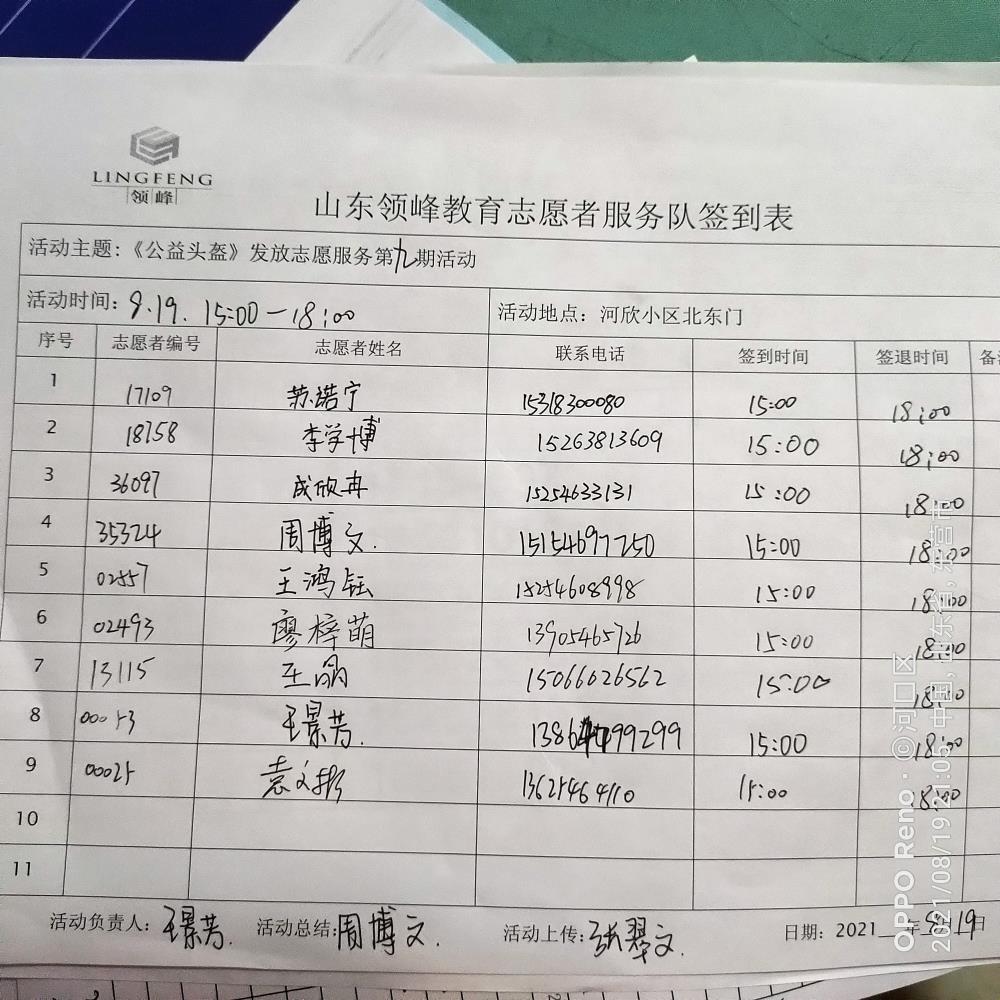 LINGFENG
领峰
山东领峰教育志愿者服务队签到表
活动主题:《公益头盔》发放志愿服务第九期活动
活动时间: 8.19. 15:00—18:00 活动地点: 河欣小区北东门
序号 志愿者编号 志愿者姓名 联系电话 签到时间 签退时间 备
1 17109 苏诺宁 15318300080 15:00 18:00
2 18758 李学博 15263813609 15:00 18:00
3 36097 成欣冉 15254633131 15:00 18:00
4 35324 周博文. 15154697250 15:00 18:00
5 02557 王鸿钰 15254608998 15:00 18:00
6 02493 廖梓萌 13905465726 15:00 18:00
7 13115 王晶 15066026562 15:00 18:00
8 00053 王景芳. 15:00 18:00
9 00025 13625464110 15:00 18:00
10
11
活动负责人: 王景芳. 活动总结: 周博文. 活动上传: 张翠文. 日期: 2021 年 8月19日
OPPO Reno · ©河口区
2021/08/19 21:05 中国, 山东省, 东营市